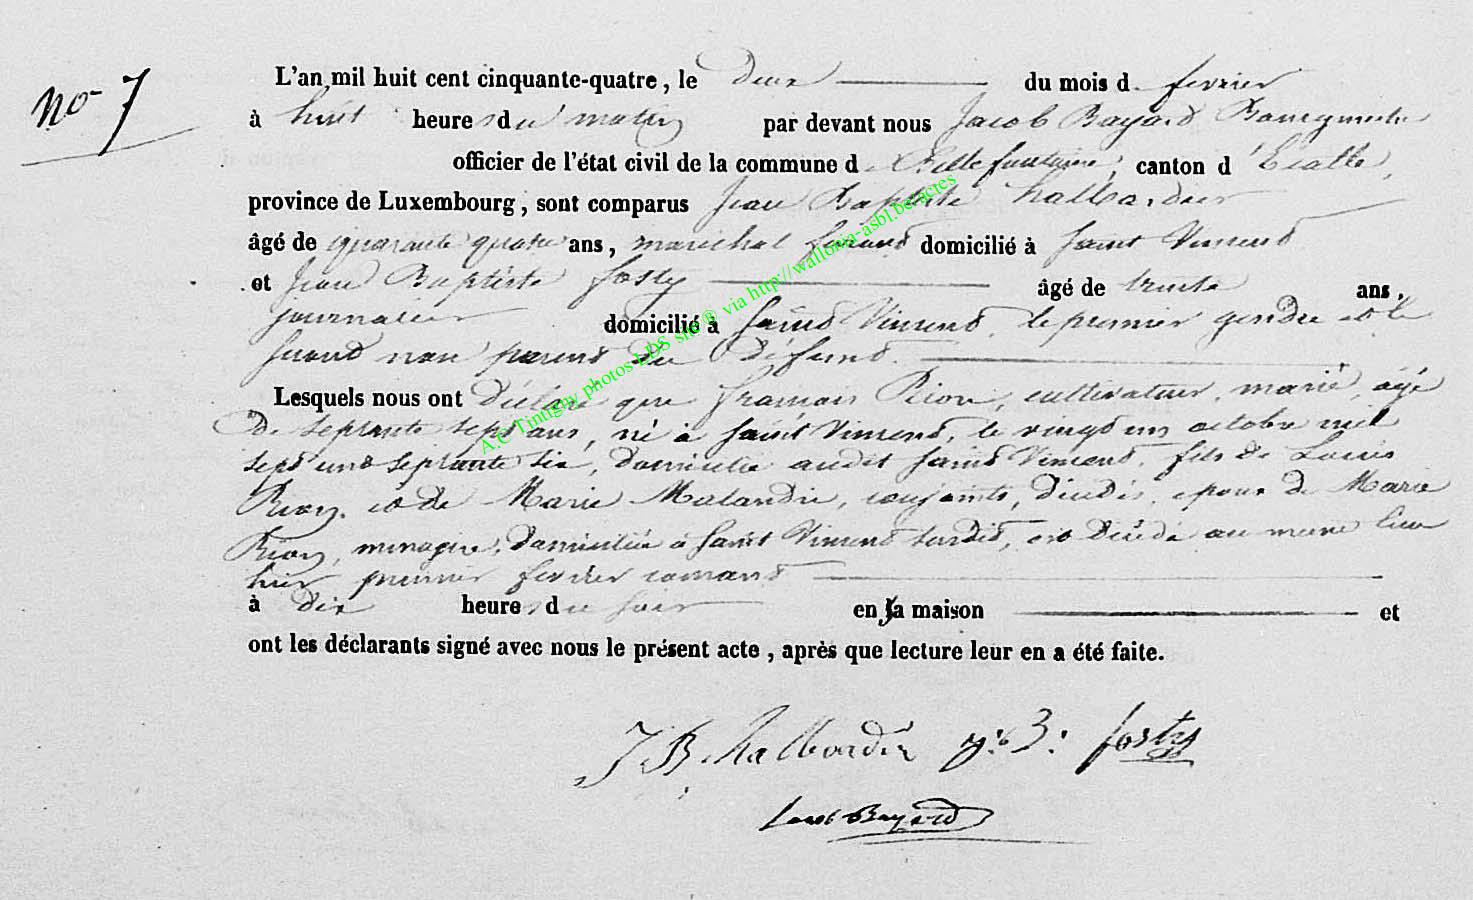 No 7
L'an mil huit cent cinquante-quatre, le deux du mois d fevrier
à huit heures du matin par devant nous Jacob Bayard Bourgmestre
officier de l'état civil de la commune d Bellefontaine, canton d'Etalle,
province de Luxembourg, sont comparus Jean Baptiste halbardier
âgé de quarante quatre ans, marechal ferand domicilié à Saint Vincend
et Jean Baptiste fosty âgé de trente ans,
journalier domicilié à Saind Vincend, le premier gendre et le
second non parend du défund.
Lesquels nous ont déclaré que francois Rion, cultivateur, marié, agé
de septante sept ans, né à Saint Vincend, le vingd un octobre mil
sept cend septante six, domicilié audit Saind Vincend, fils de Louis
Rion, et de Marie Malandri, conjoints, décédés, epoux de Marie
Rion, menagere, domiciliée à Saint Vincend susdit, est décédé au meme lieu
hier premier fevrier courand
à dix heures du soir en sa maison et
ont les déclarants signé avec nous le présent acte, après que lecture leur en a été faite.
J B halbardier J: B: fosty
Jacob Bayard
A.C Tintigny photos LDS site ® via http://wallonia-asbl.be/actes